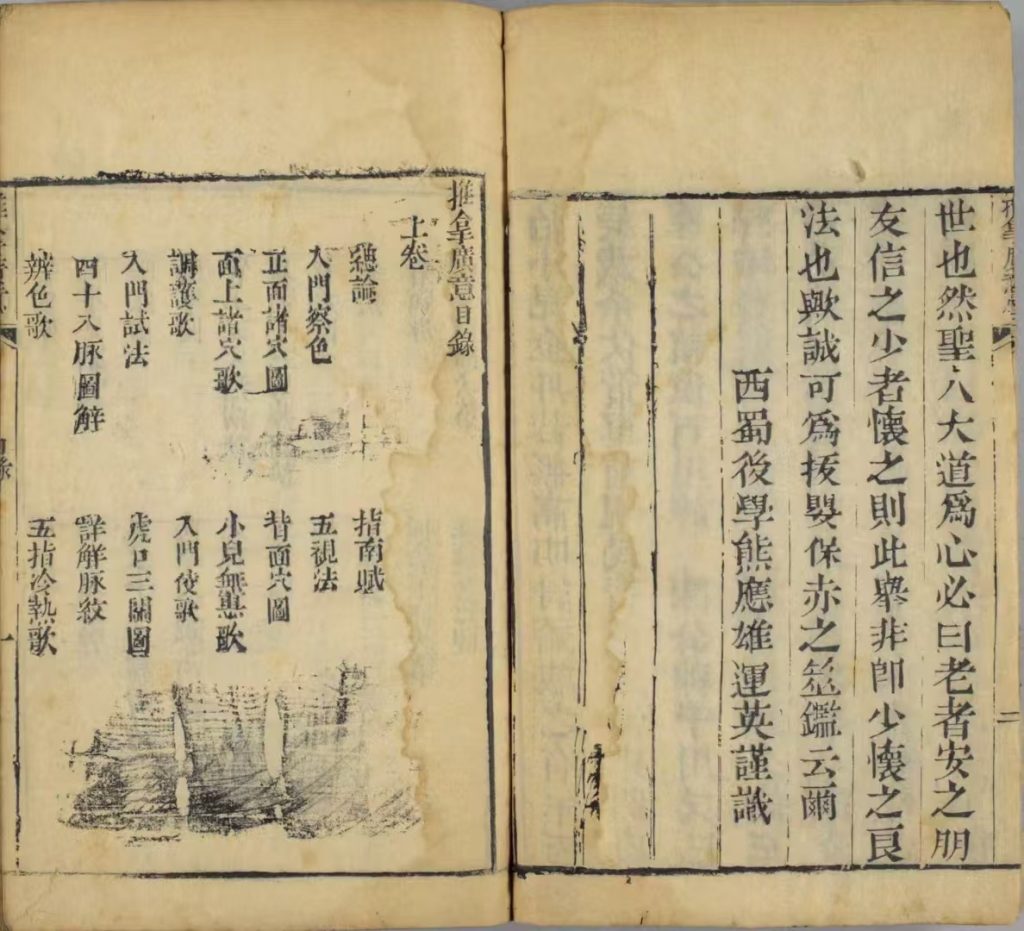 世也然聖人大道爲心必曰老者安之朋
友信之少者懷之則此舉非卽少懷之良
法也歟誠可爲拔嬰保赤之筮鑑云爾
西蜀後學熊應雄運英謹識
二
推拿廣意目錄
上卷
總論
指南賦
入門察色
五視法
正面諸穴圖
背面穴圖
面上諸穴歌
小兒無患歌
調護歌
入門候歌
入門試法
虎口三關圖
四十八脉圖解
詳解脉紋
辨色歌
五指冷熱歌
一